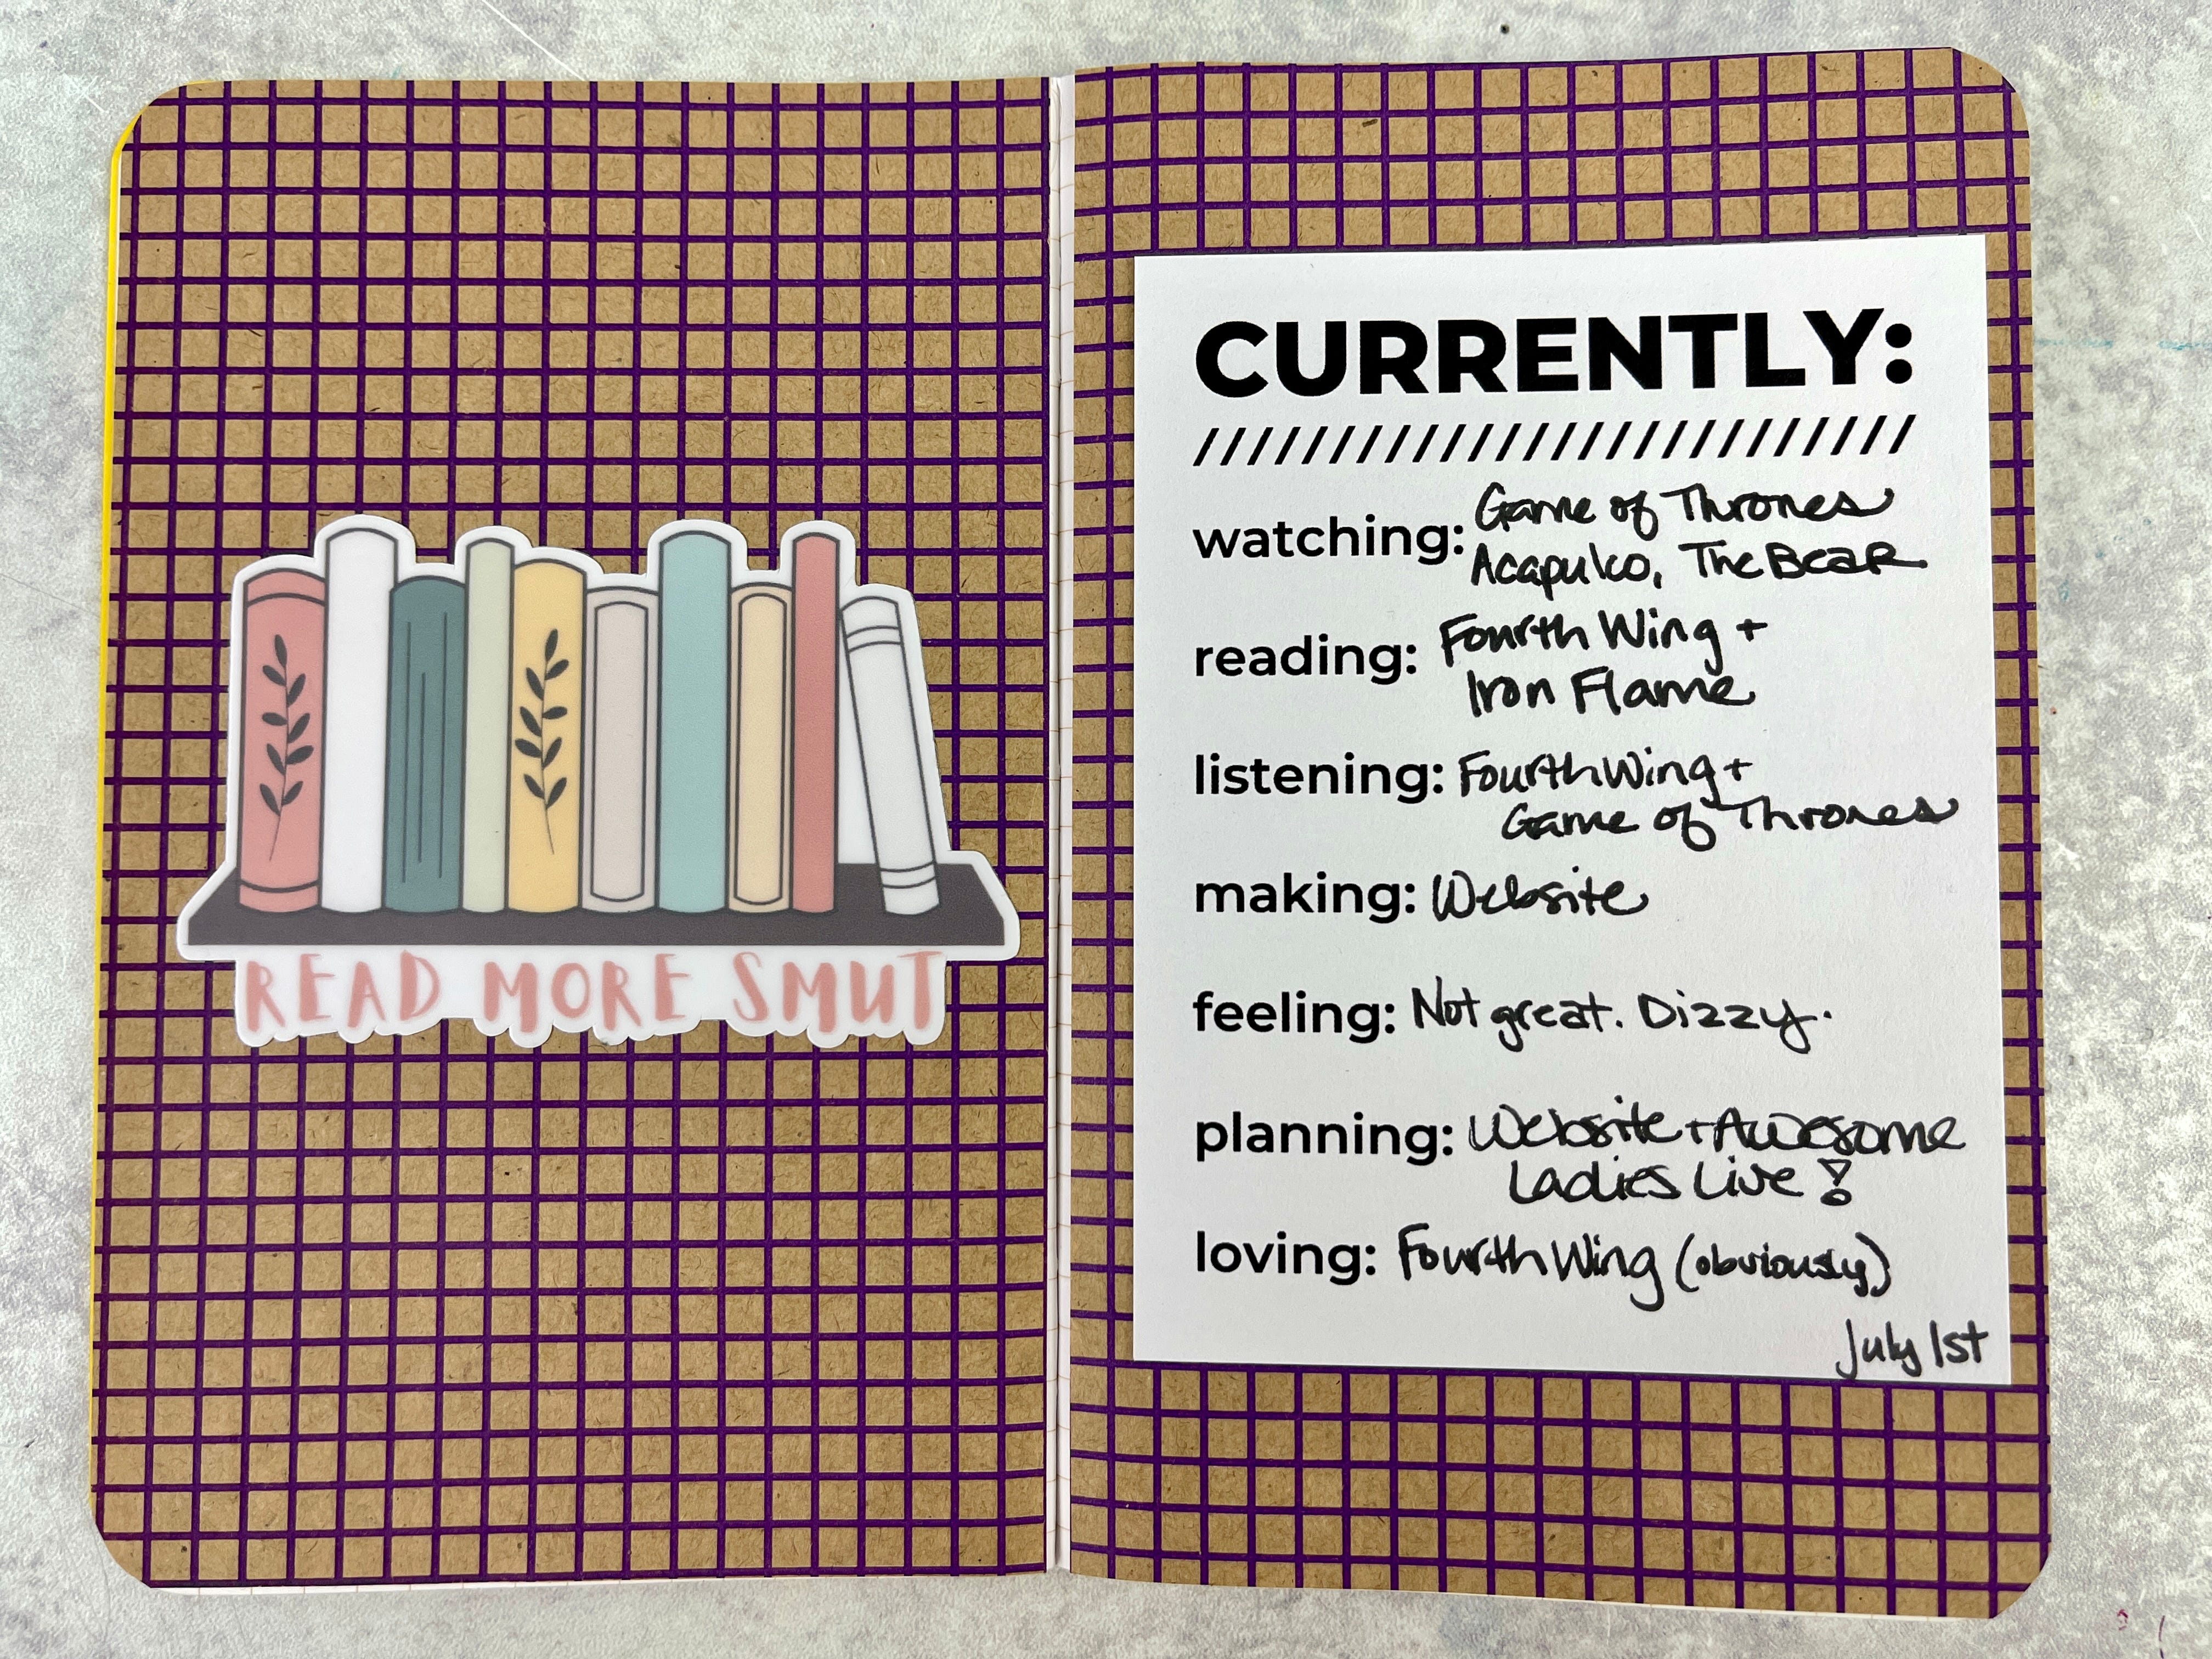 READ MORE SMUT
CURRENTLY:
//////////////////////////
watching: Game of Thrones
Acapulco, The Bear
reading: Fourth Wing +
Iron Flame
listening: Fourth Wing +
Game of Thrones
making: Website
feeling: Not great. Dizzy.
planning: Website + Awesome
Ladies Live!
loving: Fourth Wing (obviously)
July 1st